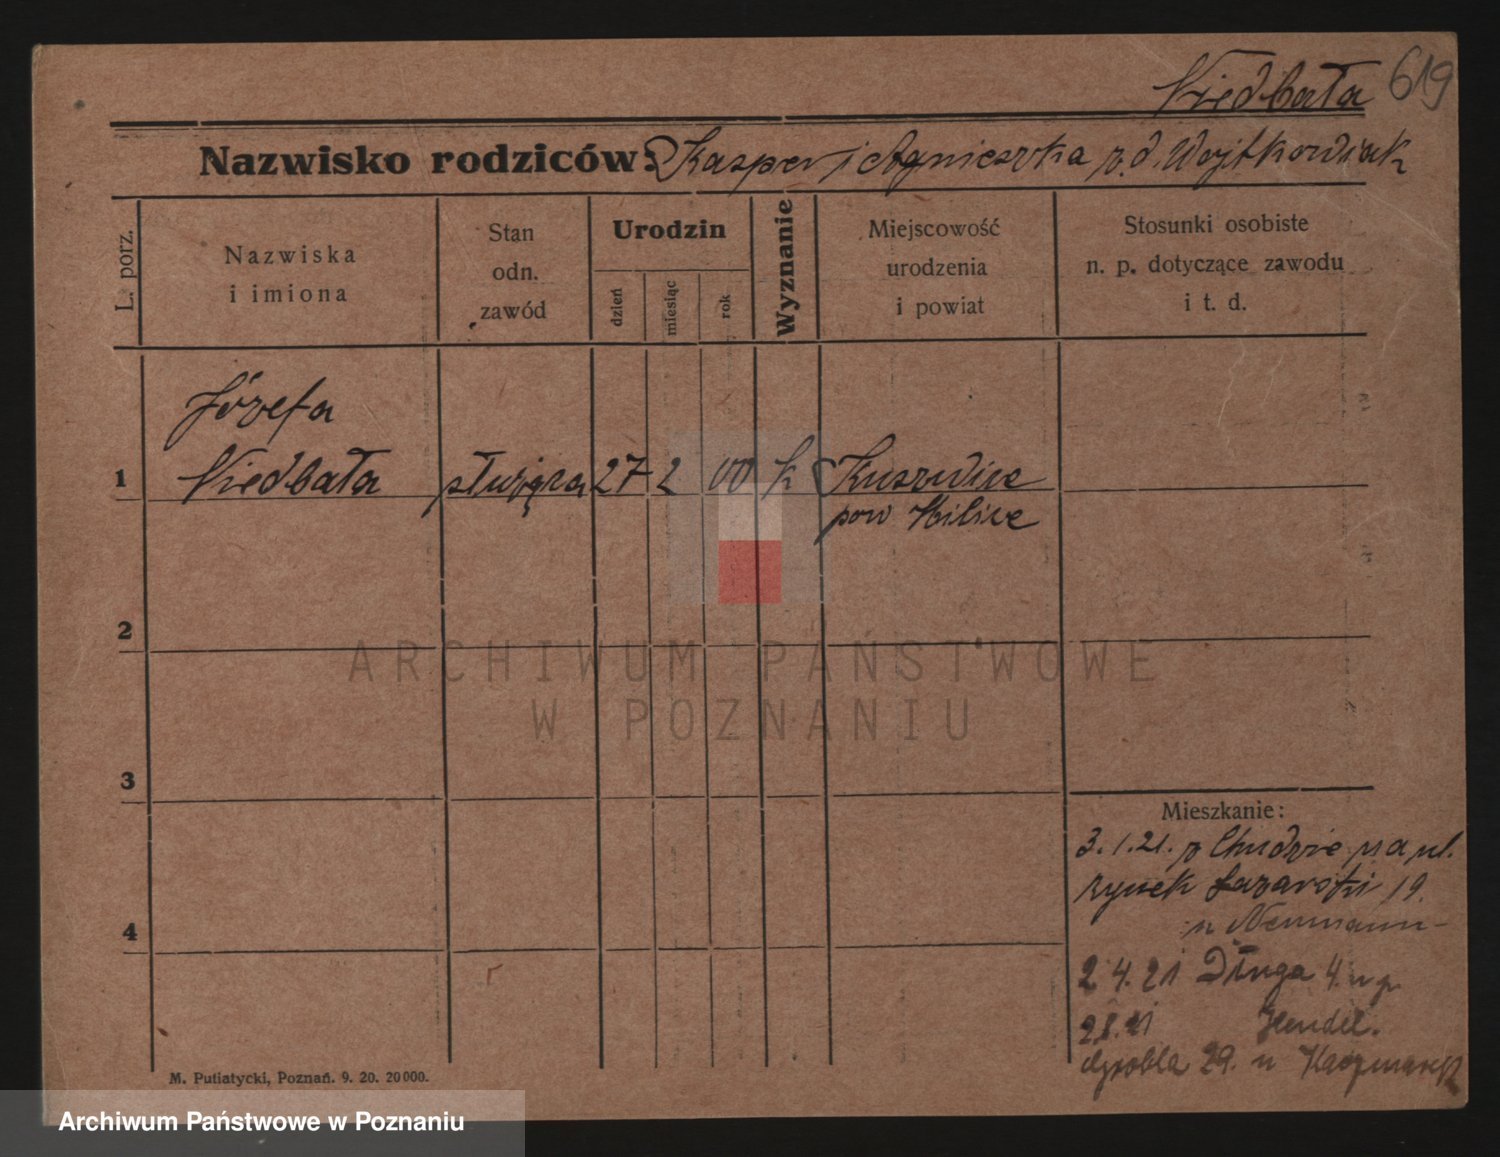 Niedbała 619
Nazwisko rodziców: Kasper i Agnieszka z. d. Wojtkowiak
L. porz.
Nazwiska
i imiona
Stan
odn.
zawód
Urodzin
dzień
miesiąc
rok
Wyznanie
Miejscowość
urodzenia
i powiat
Stosunki osobiste
n. p. dotyczące zawodu
i t. d.
Józefa
1 Niedbała służąca 27 2 00 k
pow
2
ARCHIWUM PAŃSTWOWE
W POZNANIU
3
Mieszkanie:
3.1.21. z Chudzic na ul.
rynek Łazarski 19.
u Neumann
4
2.4.21 Długa 4. u p.
Hendel.
Grobla 29. u Kaczmarek
M. Putiatycki, Poznań. 9. 20. 20000.
Archiwum Państwowe w Poznaniu